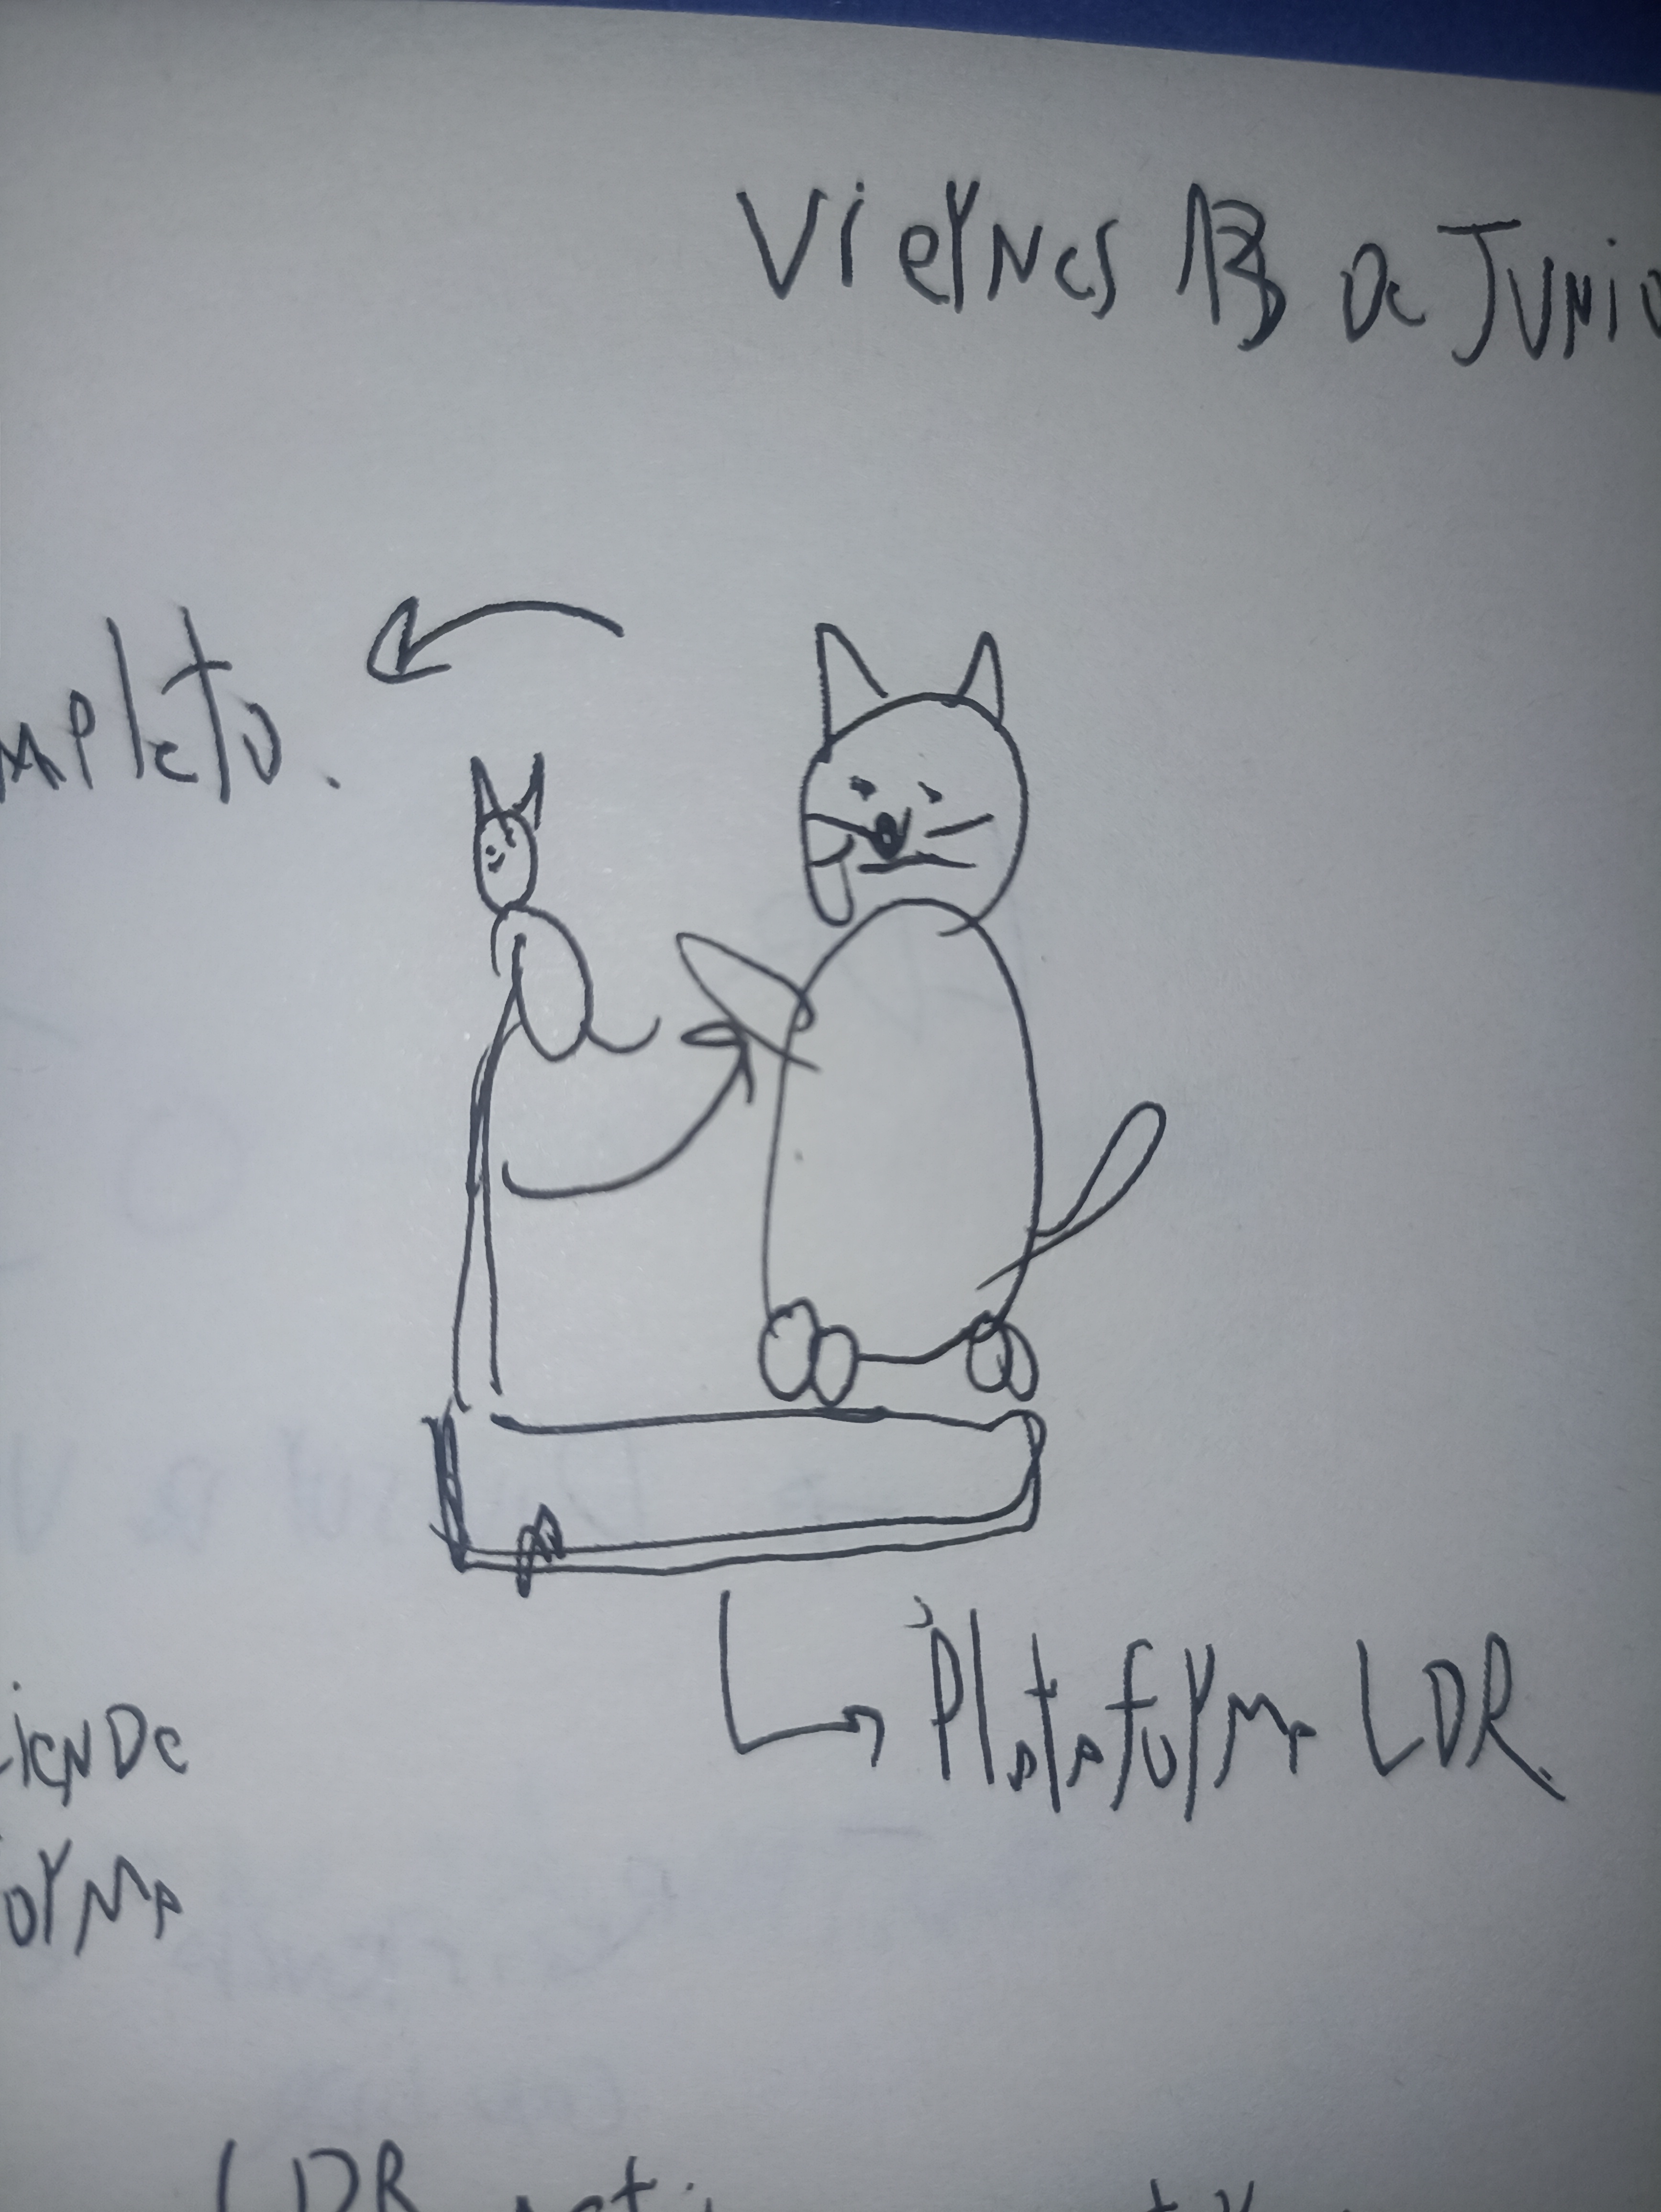 Viernes 13 de Junio
mpleto.
Plataforma LDR.
iende
orma
LDR